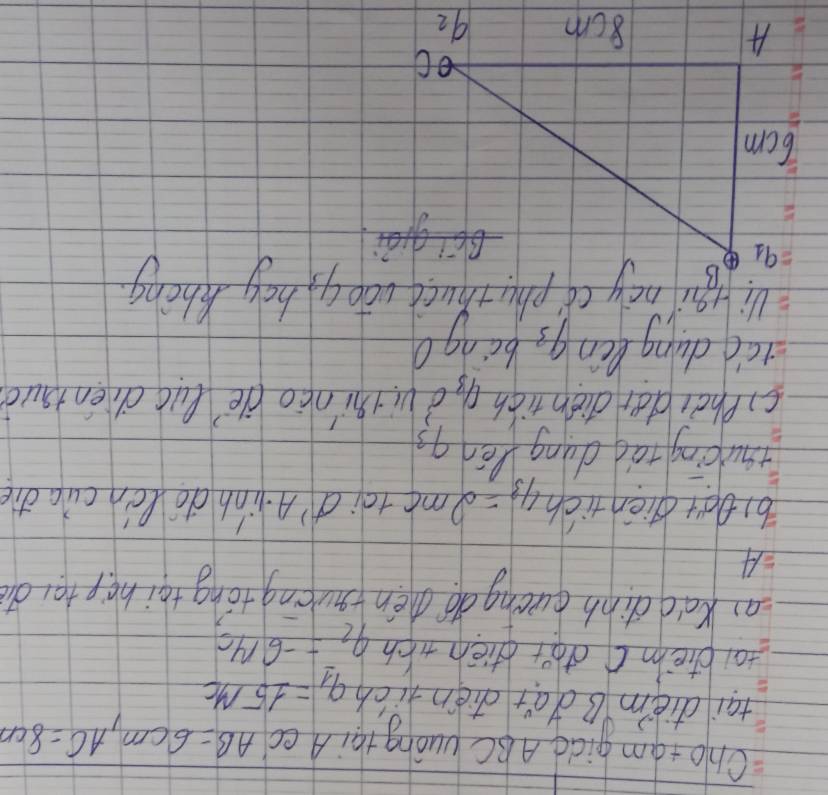 Cho tam giác ABC vuông tại A có AB = 6cm, AC = 8cm
tại điểm B đặt điện tích q1 = 15 Mc
tại điểm C đặt điện tích q2 = -6 Mc
a) Xác định cường độ điện trường tổng tại hợp tại điể
A
b) Đặt điện tích q3 = 2mc tại đ' A. tính độ lớn của điệ
trường tác dụng lên q3
c) Phải đặt điện tích q3 ở vị trí nào để lực điện trườ
tác dụng lên q3 bằng 0
Vị trí này có phụ thuộc vào q3 hay không.
Bài giải
q1 B
6cm
A 8cm q2 C